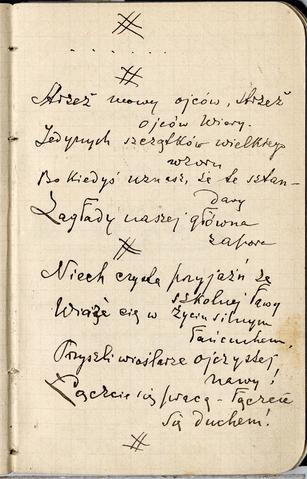 Strzeż mowy ojców, strzeż
ojców wiary.
Jedynych szczątków wielkiego
wzoru
Bo kiedyś uznasz, że te sztan-
dary
Zagłady naszej główna
zapora
Niech czysta przyjaźń ze
szkolnej ławy
Wiąże się w życiu silnym
łańcuchem,
Przyszli wioślarze ojczystej
nawy!
Łączcie się pracą - łączcie
się duchem!